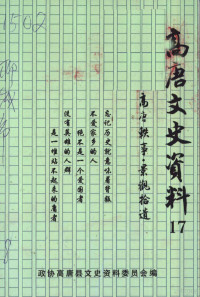 高唐文史資料
17
高唐轶事·景觀拾遗
忘记历史就意味着背叛
不爱家乡的人
绝不是一个爱国者
没有英雄的人群
是一堆站不起来的庸者
政协高唐县文史资料委员会编
1502